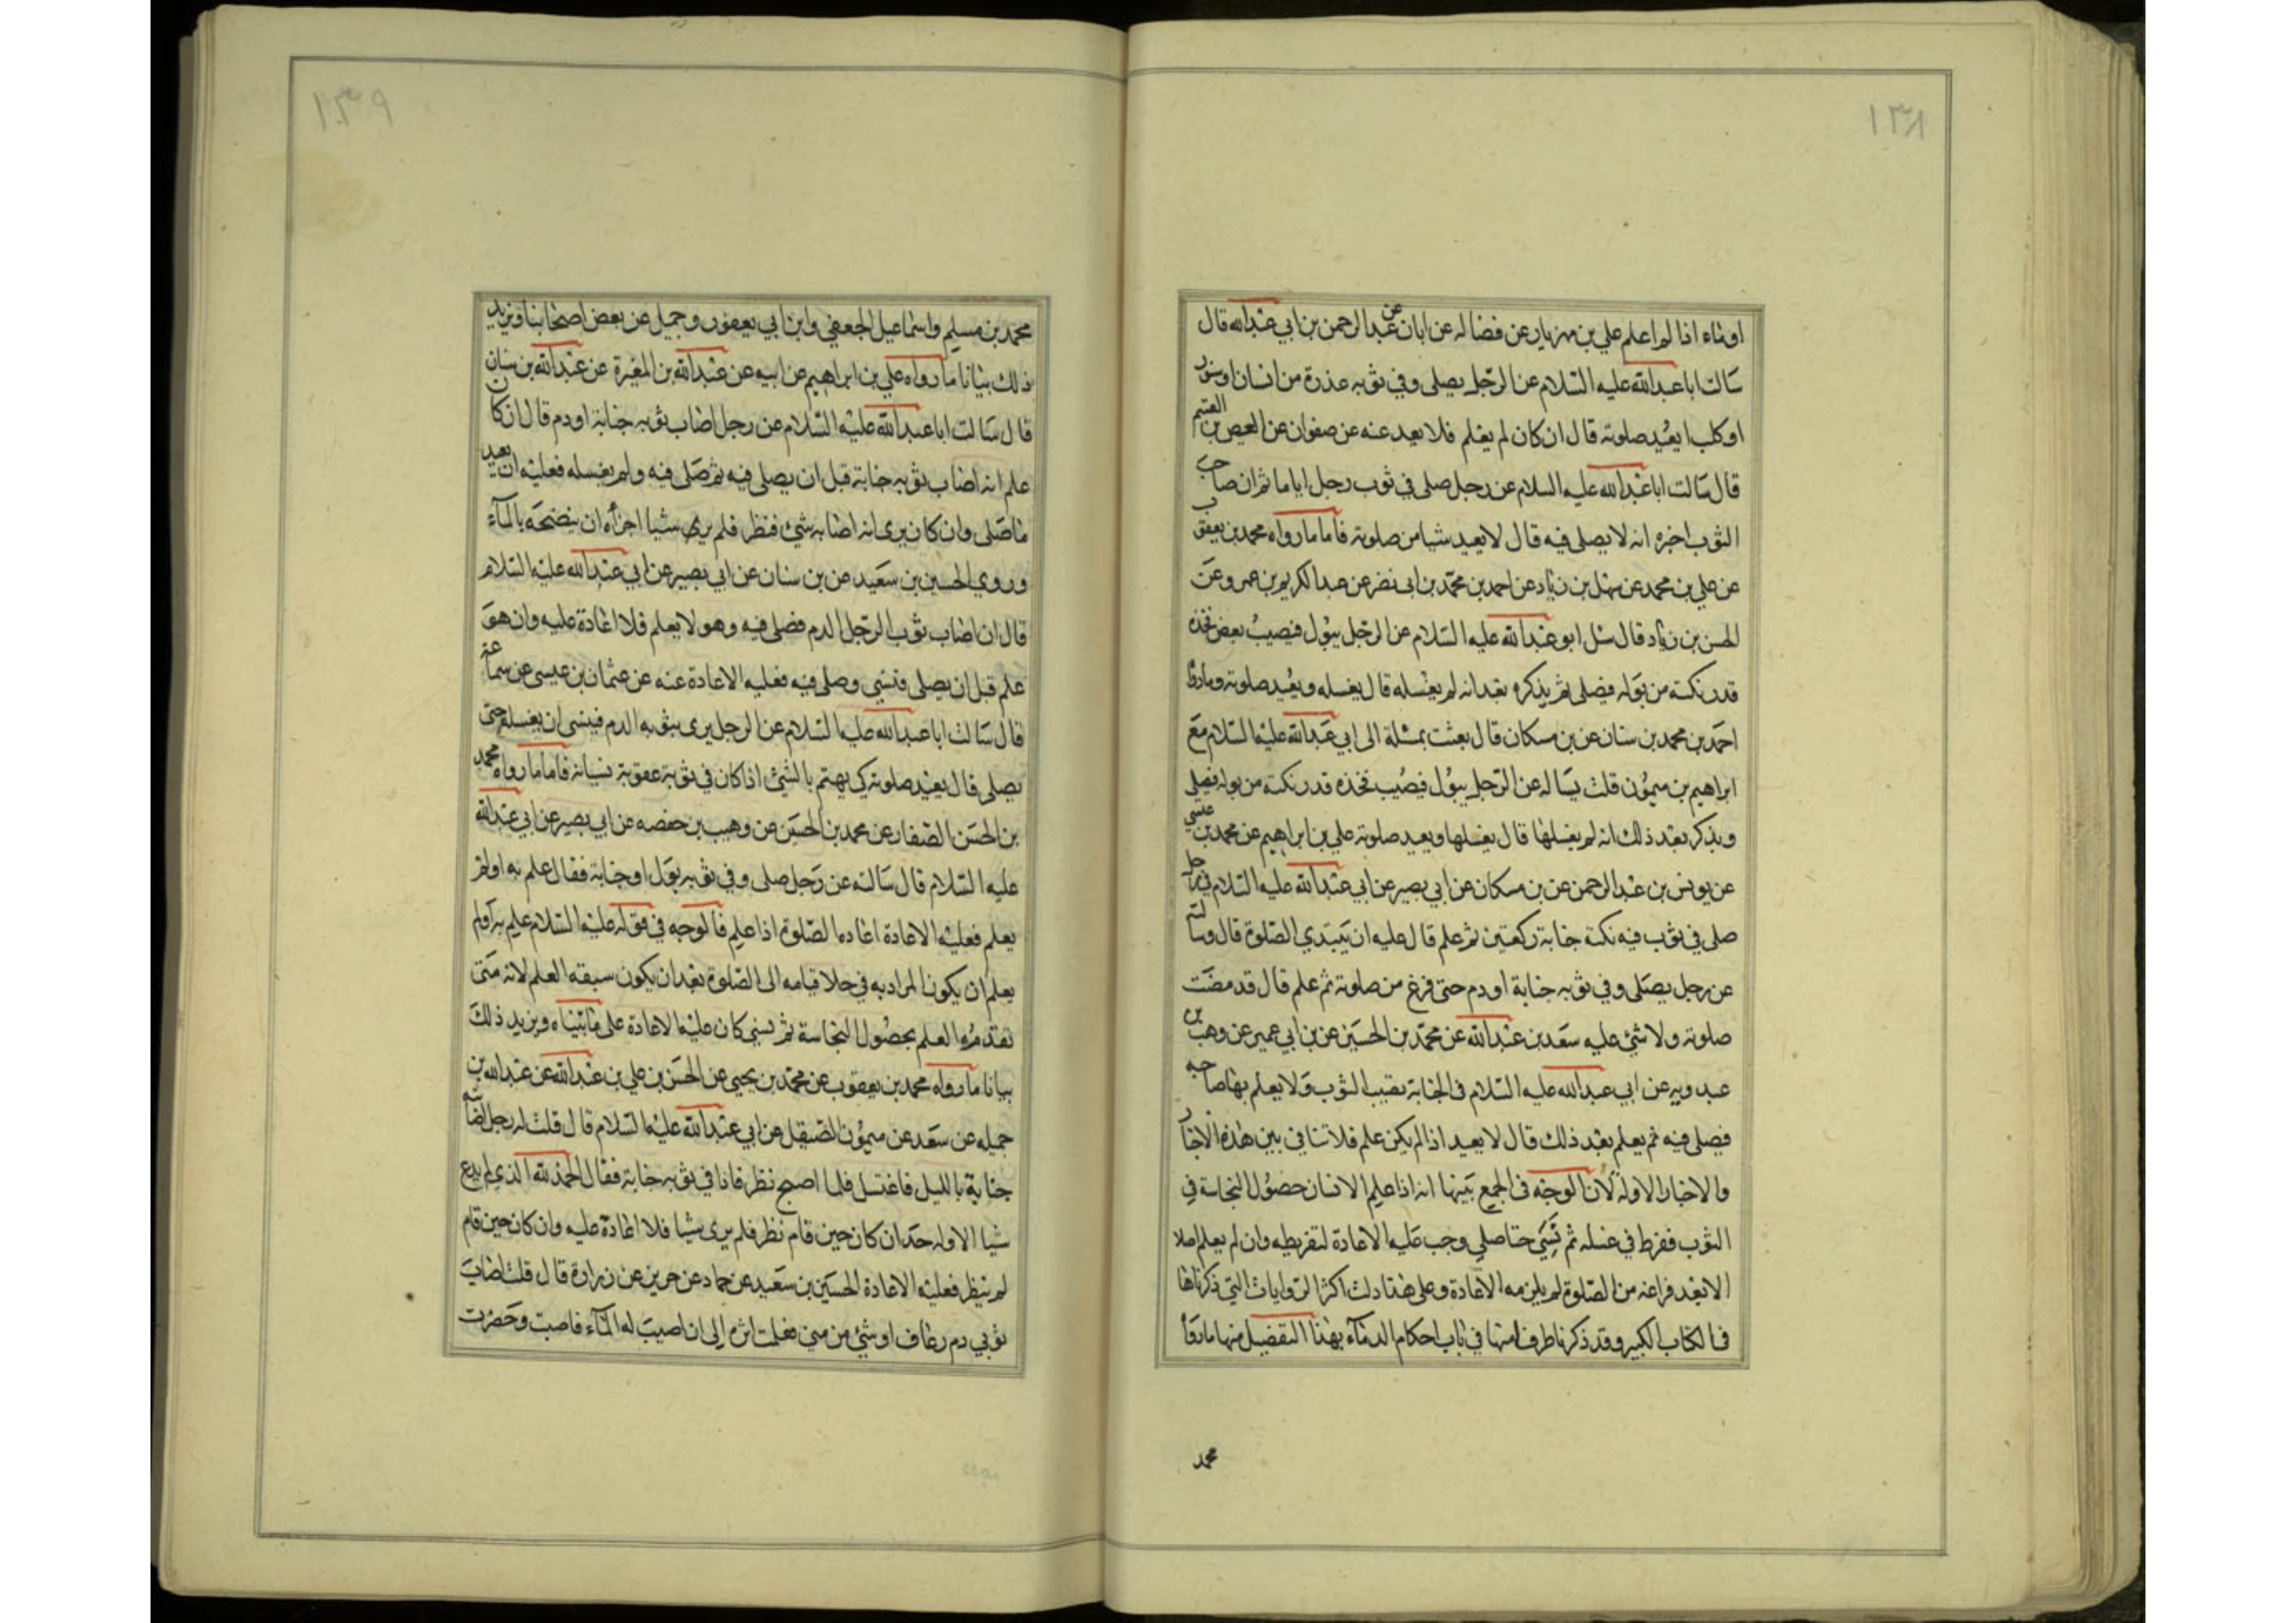 ١٣٨
او ماء اذا لم اعلم علي بن مهزيار عن فضاله عن ابان عن عبد الرحمن بن ابي عبد الله قال
سالت ابا عبد الله عليه السلام عن الرجل يصلي وفي ثوبه عذرة من انسان او سنور
او كلب ايعيد صلوته قال ان كان لم يعلم فلا يعد عنه عن صفوان عن العيص بن القسم
قال سالت ابا عبد الله عليه السلام عن رجل صلى في ثوب رجل اياما ثم ان صاحب
الثوب اخبره انه لا يصلي فيه قال لا يعيد شيا من صلوته فاما ما رواه محمد بن يعقوب
عن علي بن محمد عن سهل بن زياد عن احمد بن محمد بن ابي نصر عن عبد الكريم بن عمرو عن
الحسن بن زياد قال سئل ابو عبد الله عليه السلام عن الرجل يبول فيصيب بعض فخذه
قدر نكتة من بوله فيصلي ثم يذكره بعد انه لم يغسله قال يغسله ويعيد صلوته وما روا
احمد بن محمد بن سنان عن بن مسكان قال بعثت بمسئلة الى ابي عبد الله عليه السلام مع
ابراهيم بن ميمون قلت يساله عن الرجل يبول فيصيب فخذه قدر نكتة من بوله فيصلي
ويذكر بعد ذلك انه لم يغسلها قال يغسلها ويعيد صلوته علي بن ابراهيم عن محمد بن عيسى
عن يونس بن عبد الرحمن عن بن مسكان عن ابي بصير عن ابي عبد الله عليه السلام في رجل
صلى في ثوب فيه نكتة جنابة ركعتين ثم علم قال عليه ان يبتدي الصلوة قال وسالته
عن رجل يصلي وفي ثوبه جنابة او دم حتى فرغ من صلوته ثم علم قال قد مضت
صلوته ولا شئ عليه سعد بن عبد الله عن محمد بن الحسين عن بن ابي عمير عن وهب بن
عبد ربه عن ابي عبد الله عليه السلام في الجنابة تصيب الثوب ولا يعلم بها صاحبه
فيصلي فيه ثم يعلم بعد ذلك قال لا يعيد اذا لم يكن علم فلا تنافي بين هذه الاخبار
والاخبار الاوله لان الوجه في الجمع بينها انه اذا علم الانسان حصول النجاسة في
الثوب ففرط في غسله ثم نسي حتا صلي وجب عليه الاعادة لتفريطه وان لم يعلم اصلا
الا بعد فراغه من الصلوة لم يلزمه الاعادة وعلى هذا دلت اكثر الروايات التي ذكرناها
في الكتاب الكبير وقد ذكرنا طرفا منها في باب احكام الدماء بهذا التفصيل منها ما روا
محمد
١٣٩
محمد بن مسلم واسماعيل الجعفي وابن ابي يعفور وجميل عن بعض اصحابنا ويزيد
ذلك بيانا ما رواه علي بن ابراهيم عن ابيه عن عبد الله بن المغيرة عن عبد الله بن سنان
قال سالت ابا عبد الله عليه السلام عن رجل اصاب ثوبه جنابة او دم قال ان كان
علم انه اصاب ثوبه جنابة قبل ان يصلي فيه ثم صلى فيه ولم يغسله فعليه ان يعيد
ما صلى وان كان يرى انه اصابه شئ فنظر فلم يرى شيا اجزاه ان ينضحه بالماء
وروي الحسين بن سعيد عن بن سنان عن ابي بصير عن ابي عبد الله عليه السلام
قال ان اصاب ثوب الرجل الدم فصلى فيه وهو لا يعلم فلا اعادة عليه وان هو
علم قبل ان يصلي فنسي وصلى فيه فعليه الاعادة عنه عن عثمان بن عيسى عن سماعة
قال سالت ابا عبد الله عليه السلام عن الرجل يرى بثوبه الدم فينسى ان يغسله حتى
يصلي قال يعيد صلوته كي يهتم بالشئ اذا كان في ثوبه عقوبة نسيانه فاما ما رواه محمد
بن الحسن الصفار عن محمد بن الحسين عن وهيب بن حفصه عن ابي بصير عن ابي عبد الله
عليه السلام قال سالته عن رجل صلى وفي ثوبه بول او جنابة فقال علم به او لم
يعلم فعليه الاعادة اعاده الصلوة اذا علم فالوجه في قوله عليه السلام علم به او لم
يعلم ان يكون المراد به في حلا قيامه الى الصلوة بعد ان يكون سبقه العلم لانه متى
تقدمه العلم بحصول النجاسة ثم نسي كان عليه الاعادة على ما بيناه ويزيد ذلك
بيانا ما رواه محمد بن يعقوب عن محمد بن يحيى عن الحسن بن علي بن عبد الله عن عبد الله بن
جبله عن سعد عن ميمون الصيقل عن ابي عبد الله عليه السلام قال قلت له رجل اصابته
جنابة بالليل فاغتسل فلما اصبح نظر فاذا في ثوبه جنابة فقال الحمد لله الذي لم يدع
شيا الا وله حد ان كان حين قام نظر فلم يرى شيا فلا اعادة عليه وان كان حين قام
لم ينظر فعليه الاعادة الحسين بن سعيد عن حماد عن حريز عن زرارة قال قلت اصاب
ثوبي دم رعاف او شئ من مني فعلمت اثره الى ان اصيب له الماء فاصبت وحضرت